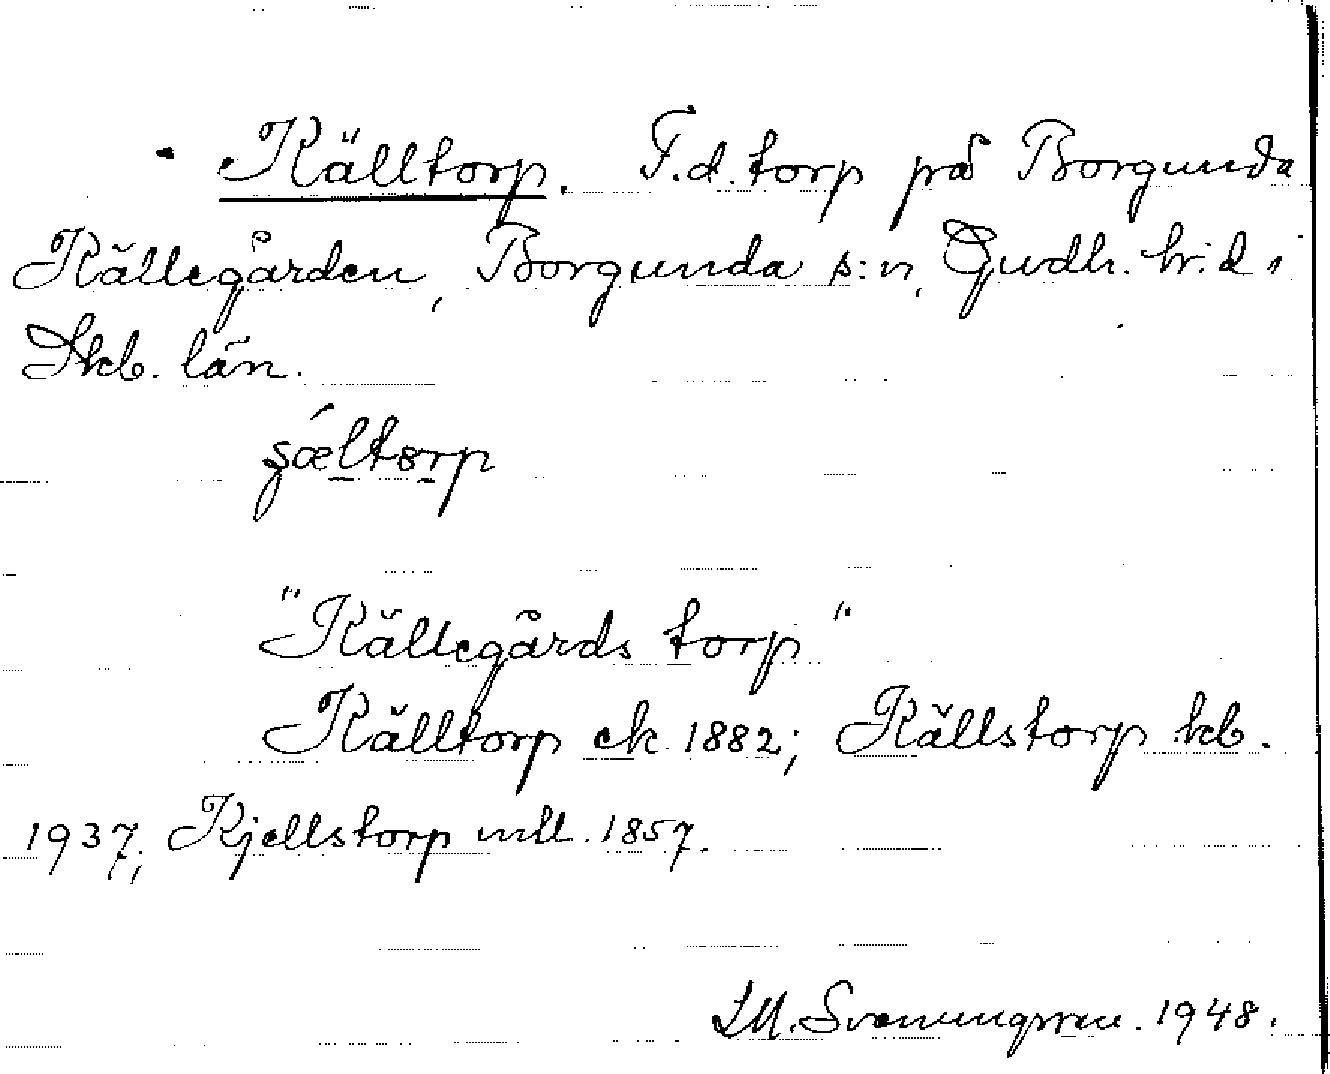 Källtorp. F.d. torp på Borgunda
Källegården, Borgunda s:n, Gudh. hr.d i
Skb. län.
"Källegårds torp"
Källtorp ek 1882; Källstorp kb.
1937; Kjellstorp mtl. 1857.
Svenungsson. 1948.